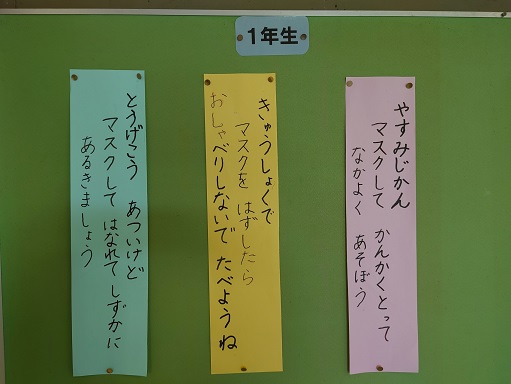 1年生
やすみじかん
マスクして かんかくとって
なかよく あそぼう
きゅうしょくで
マスクを はずしたら
おしゃべりしないで たべようね
とうげこう あついけど
マスクして はなれて しずかに
あるきましょう